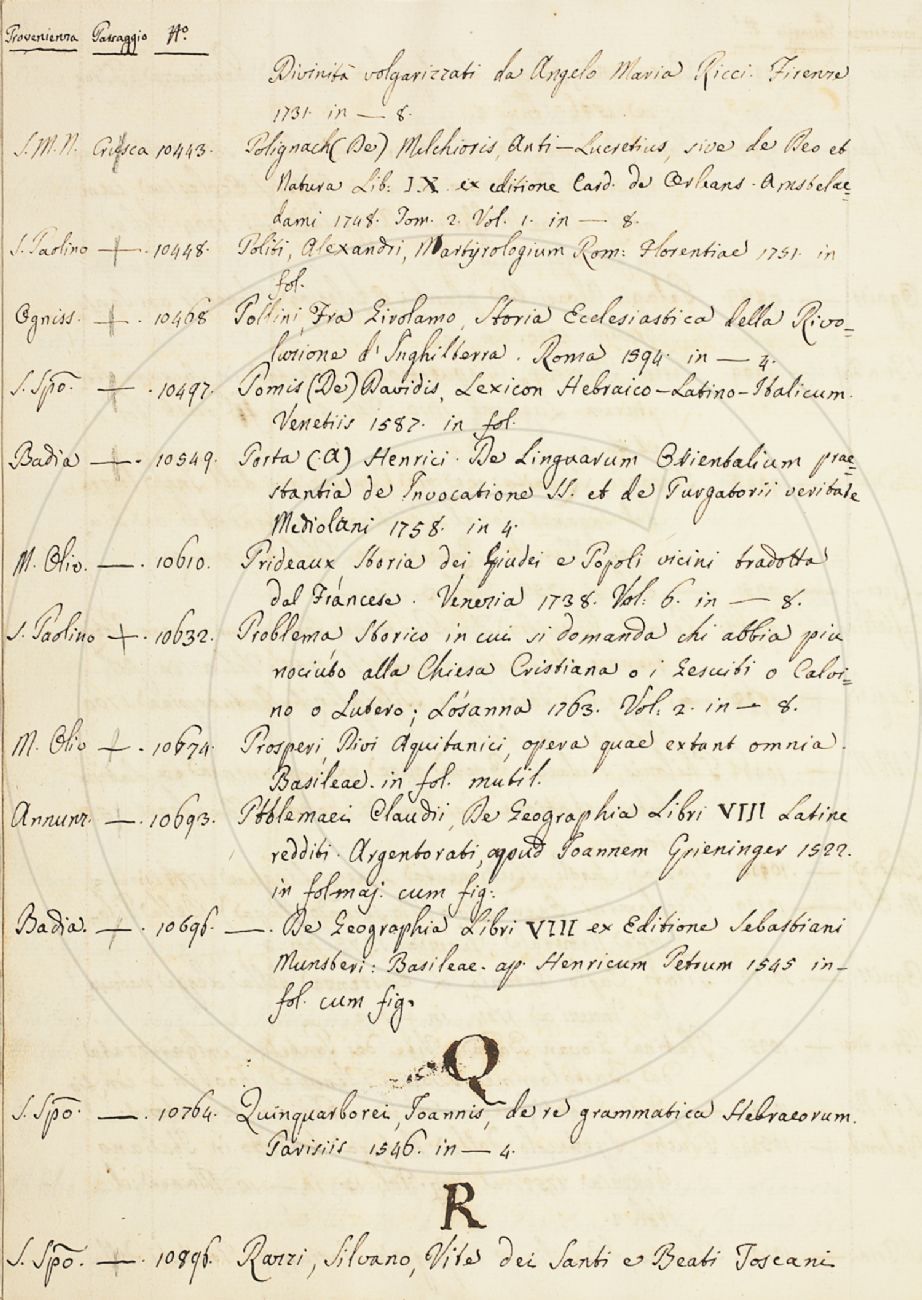 Provenienza Passaggio N.º
Divinità volgarizzati da Angelo Maria Ricci. Firenze
1731. in — 8.
S. M. N. Crusca 10443. Polignach (De) Melchioris, Anti-Lucretius, sive de Deo et
Natura Lib: IX. ex editione Card. de Orleans. Amstelae=
dami 1748. Tom. 2. Vol. 1. in — 8.
S. Paolino — . 10448. Politi, Alexandri, Martyrologium Rom: Florentiae 1751. in
fol.
Ogniss. — . 10468 Pollini, Fra Girolamo, Storia Ecclesiastica della Rivo=
luzione d'Inghilterra. Roma 1594. in — 4.
S. Spo. — . 10497. Pomis (De) Davidis, Lexicon Hebraico-Latino-Italicum.
Venetiis 1587. in fol.
Badia — . 10549. Porta (A) Henrici. De Linguarum Orientalium prae=
stantia de Invocatione SS. et de Purgatorii veritate
Mediolani 1758. in 4.
M. Oliv. — . 10610. Prideaux Storia dei Giudei e Popoli vicini tradotta
dal Francese. Venezia 1738. Vol: 6. in — 8.
S. Paolino — . 10632. Problema Storico in cui si domanda chi abbia piu
nociuto alla Chiesa Cristiana o i Gesuiti o Calvi=
no o Lutero; Losanna 1763. Vol: 2. in — 8.
M. Oliv — . 10674. Prosperi, Divi Aquitanici, opera quae extant omnia.
Basileae. in fol. mutil.
Annunz. — . 10693. Ptolemaei Claudii, De Geographia Libri VIII Latine
redditi. Argentorati, apud Joannem Grieninger 1522.
in fol. maj. cum fig:
Badia. — . 10696. — . De Geographia Libri VIII ex Editione Sebastiani
Munsteri: Basileae. ap. Henricum Petrum 1545 in-
fol. cum fig.
Q
S. Spo. — . 10764. Quinquarborei, Joannis, de re grammatica Hebraeorum.
Parisiis 1546. in — 4.
R
S. Spo. — . 10896. Razzi, Silvano, Vite dei Santi e Beati Toscani